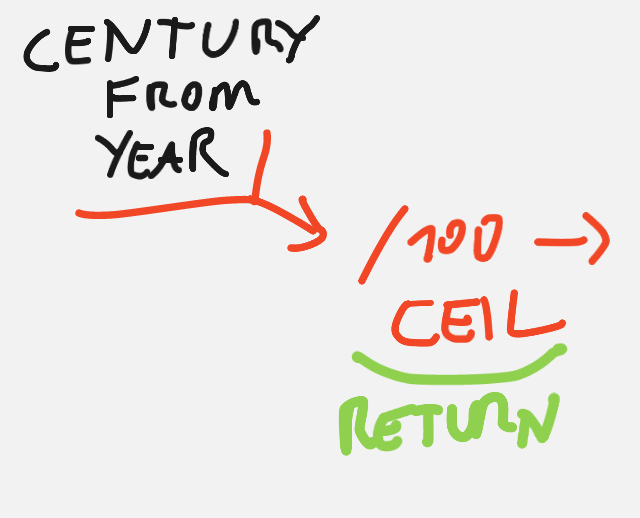 CENTURY
FROM
YEAR
/100 →
CEIL
RETURN